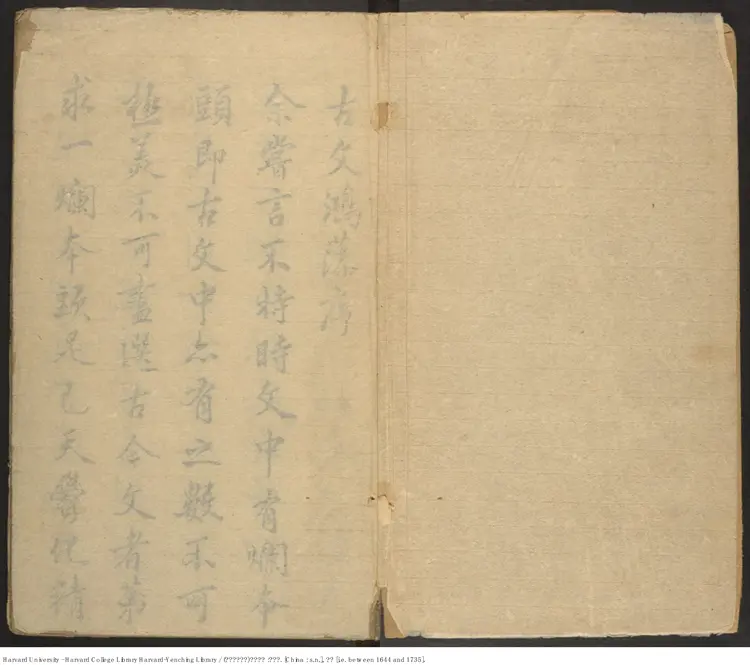 古文鴻藻序
余嘗言不特時文中有爛本
頭即古文中亦有之數不可
極美不可盡選古今文者第
求一爛本頭是已天聲化精
Harvard University - Harvard College Library Harvard-Yenching Library / (??????)???? :???. [China : s.n.], ?? [i.e. between 1644 and 1735].